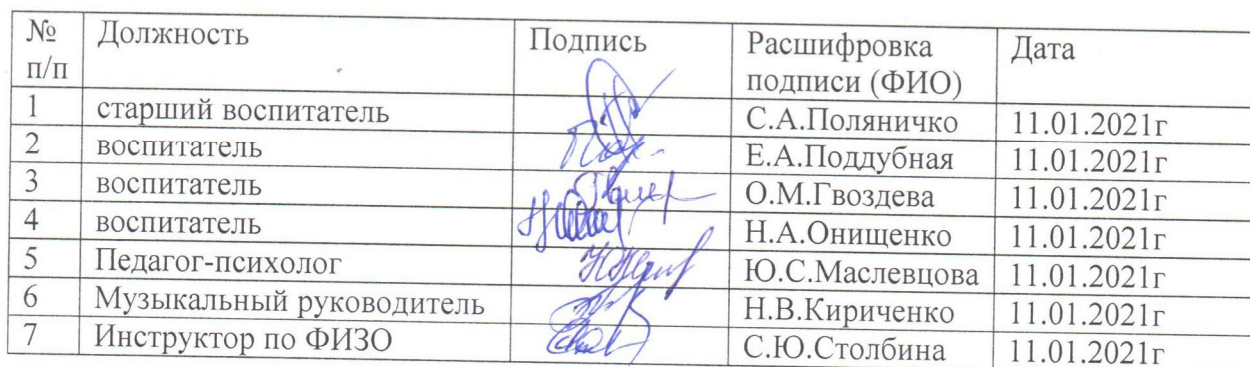 № п/п Должность Подпись Расшифровка подписи (ФИО) Дата
1 старший воспитатель С.А.Поляничко 11.01.2021г
2 воспитатель Е.А.Поддубная 11.01.2021г
3 воспитатель О.М.Гвоздева 11.01.2021г
4 воспитатель Н.А.Онищенко 11.01.2021г
5 Педагог-психолог Ю.С.Маслевцова 11.01.2021г
6 Музыкальный руководитель Н.В.Кириченко 11.01.2021г
7 Инструктор по ФИЗО С.Ю.Столбина 11.01.2021г